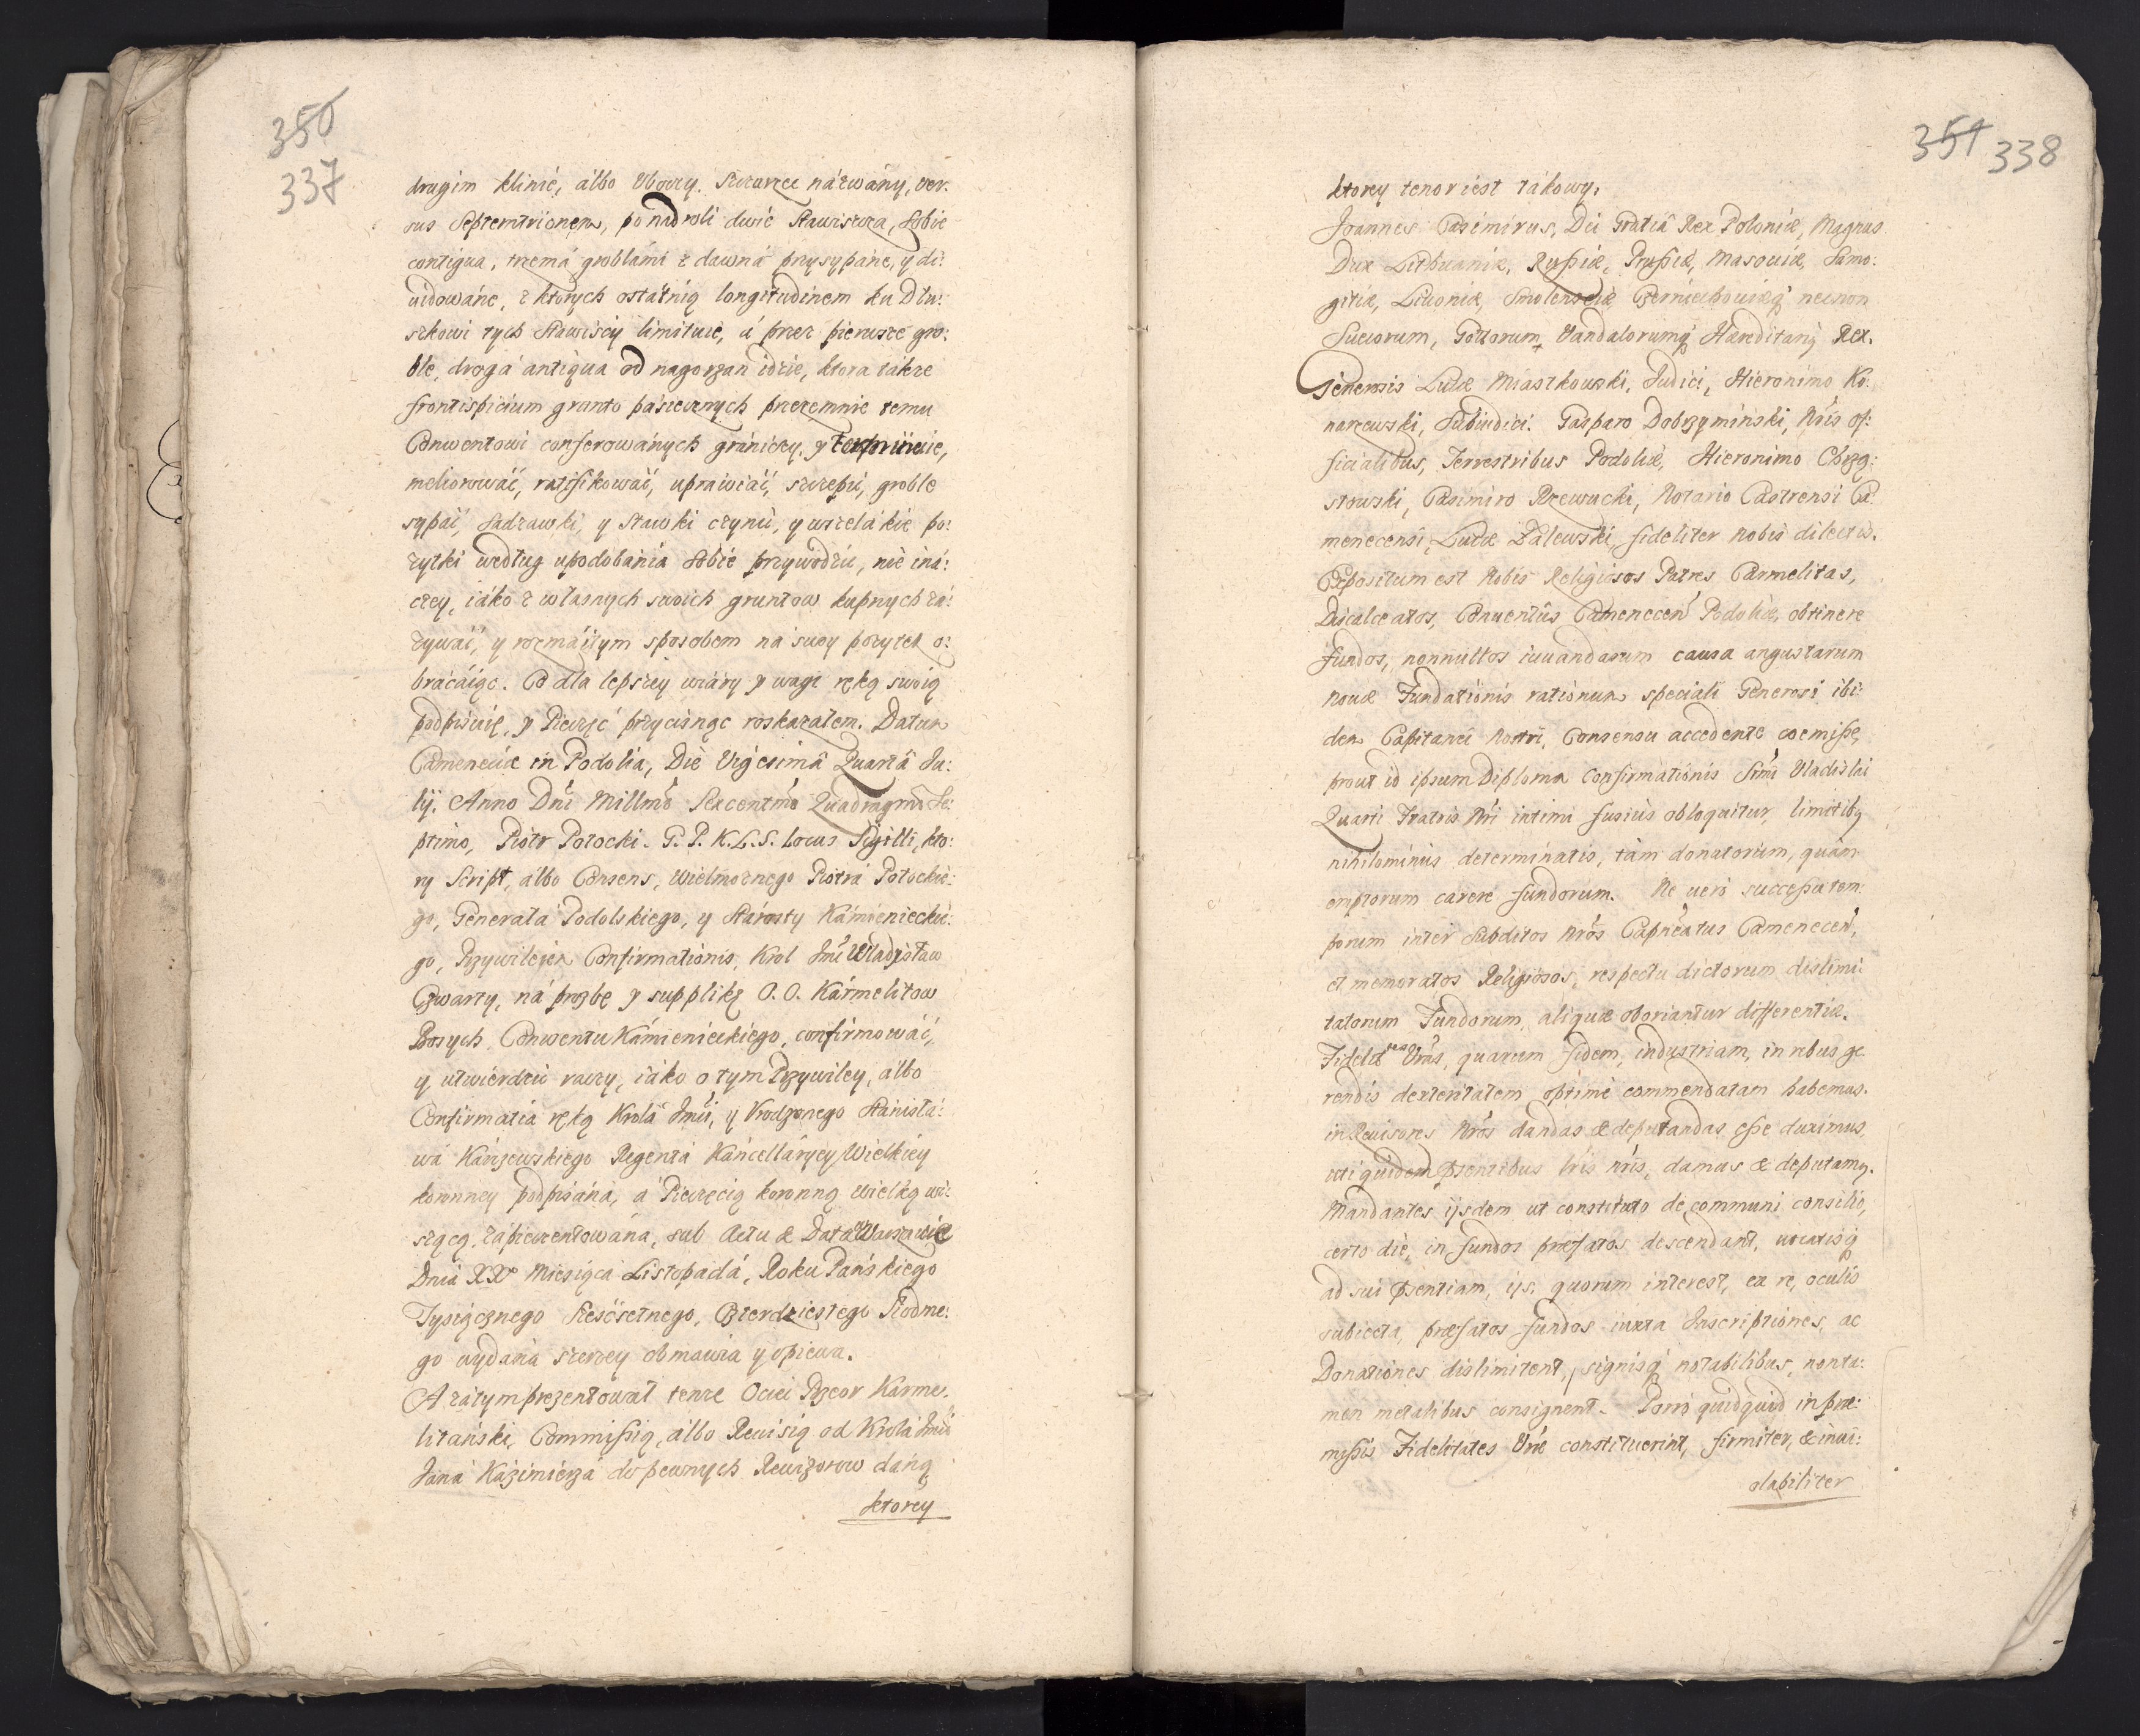 350
337
drugim klinie, albo Uboczy. Szczurzec názwány, ver:
sus Septemtrionem, po nad roli dwie Stawiszcza, Sobie
contigua, trzemá groblámi z dawná przysypáne, y di:
uidowáne, z ktorych ostátnią longitudinem ku Dłu:
szkowi tych Stawiscży limituie, á przez pierwsze gro:
ble, drogá antiqua od nagorzan idzie, ktora tákze
frontispicium grunto pásiecznych przezemnie temu
Conwentowi conferowánych grániczy, y terminuie,
meliorowáć, ratifikowáć, upráwiáć, szczepić, groble
sypáć, Sadzawki, y Stawki czynić, y wszelákie po:
zytki według upodobánia Sobie przywodzić, nie iná:
czey, iáko z własnych swoich gruntow kupnych zá:
zywáć, y rozmáitym sposobem ná swoy pozytek o:
brácáiąc. Co dla lepszey wiáry y wagi ręką swoią
podpisuię, y Pieczęć przycisnąc roskazałem. Datum
Cameneciæ in Podolia, Die Vigesimâ Quartâ Ju:
lij. Anno Dńi Millmo Sexcentmo Quadragmo Se:
ptimo, Piotr Potocki. G. P. K. L. S. Locus Sigilli, kto:
ry Script, álbo Consens, Wielmoznego Piotrá Potockie:
go, Generałá Podolskiego, y Stárosty Kámienieckie:
go, Przywileiem Confirmationis, Krol Jmć Władysław
Czwarty, ná prozbę y supplikę O. O. Kármelitow
Bosych Conwentu Kámienieckiego, confirmowáć,
y utwierdzić raczy, iáko o tym Przywiley, álbo
Confirmatia ręką Krolá Jmći, y Vrodzonego Stánisłá:
wá Káńzewskiego Regentá Káncelláryey Wielkiey
koronney podpisáná, á Pieczęcią koronną wielką wi:
szącą, zápieczentowána, sub Actu & Data w Warszawie
Dniá XXo Miesiącá Listopadá, Roku Pańskiego
Tysiącznego Szesćsetnego, Czterdziestego Siodme:
go wydána szerzey obmawia y opiewa.
A zátym prezentowáł tenze Ociec Przeor Karme:
litański, Commissią, albo Reuisią od Krolá Jmći
Janá Kázimierzá do pewnych Rewizorow dáną
ktorey
351 338
ktorey tenor iest tákowy.
Joannes Casimirus, Dei Gratiâ Rex Poloniæ, Magnus
Dux Lithuaniæ, Russiæ, Prussiæ, Masouiæ, Samo:
gitiæ, Liuoniæ, Smolensciæ Czerniechouiæq; necnon
Suecorum, Gottorum, Vandalorumq; Hæreditariq; Rex.
Generosis Lucæ Miaszkowski, Judici, Hieronimo Ko:
narzewski, Subiudici. Gasparo Dobrzyminski, Nris of:
ficialibus, Terrestribus Podoliæ, Hieronimo Chrzą:
stowski, Casimiro Rzewuchi, Notario Castrensi Ca:
menecensi, Lucæ Zalewski, fideliter nobis dilectis.
Expositum est Nobis Religiosos Patres Carmelitas,
Discalceatos, Conuentûs Camenecen Podoliæ, obtinere
fundos, nonnullos iuuandarum causa angustarum
nouæ Fundationis rationum speciali Generosi ibi:
dem Capitanei Nostri, Consensu accedente coemisse,
prout id ipsum Diploma Confirmationis Smi Vladislai
Quarti Fratris Nri intimi fusius obloquitur, limitibq
nihilominus determinatis, tàm donatorum, quàm
emptorum carere fundorum. Ne uerò successu tem:
porum inter Subditos Nros Capneatus Camenecen,
et memoratos Religiosos, respectu dictorum dislimi:
tatorum Fundorum, aliquæ oboriantur differentiæ.
Fideltes Vras, quarum fidem, industriam, in rebus ge:
rendis dexteritatem optimè commendatam habemus.
in Reuisores Nros dandas & deputandas esse duximus,
uti quidem psentibus lris nris, damus & deputamq.
Mandantes ijsdem ut constituto de communi consilio,
certo die, in fundos præfatos descendant, uocatisq;
ad sui psentiam, ijs, quorum interest, ex re, oculis
subiecta, præfatos fundos iuxta Inscriptiones, ac
Donationes dislimitent, signisq; notabilibus, nonta:
men metalibus consignent. Porrò quidquid in præ:
missis Fidelitates Vræ constituerint, firmiter, & inui:
olabiliter